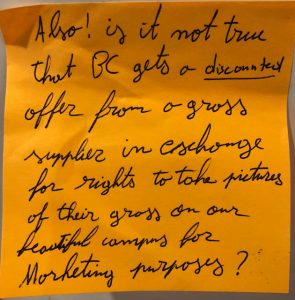 Also! is it not true
that BC gets a discounted
offer from a grass
supplier in exchange
for rights to take pictures
of their grass on our
beautiful campus for
Marketing purposes?